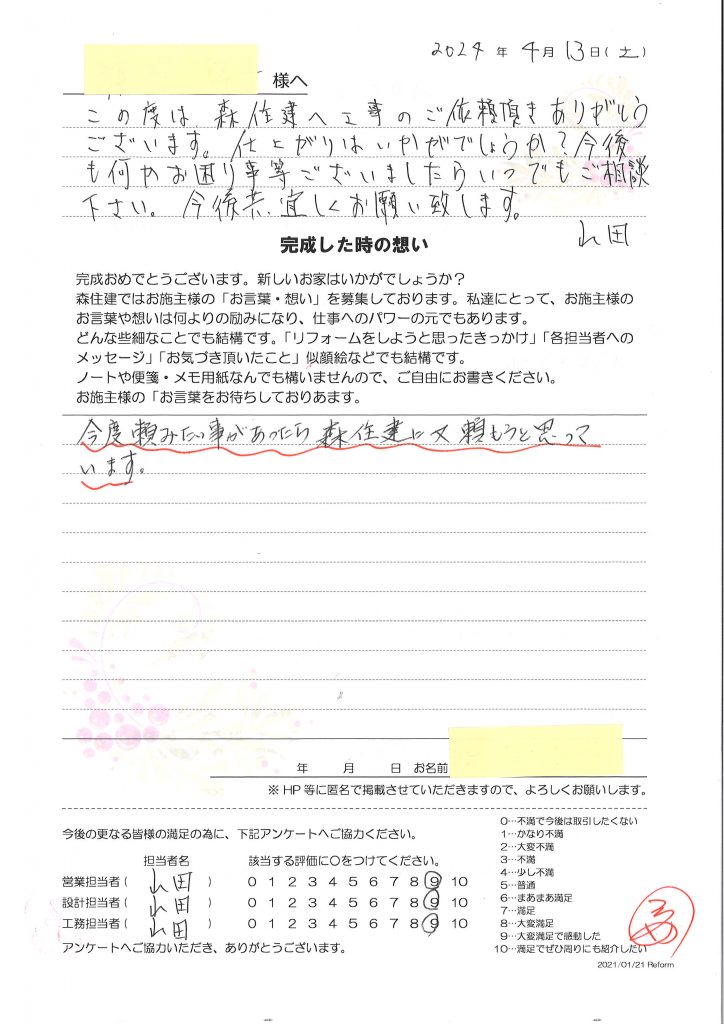 2024 年 4月 13日(土)
様へ
この度は、森住建へ工事のご依頼頂きありがとう
ございます。仕上がりはいかがでしょうか?今後
も何かお困り事等ございましたらいつでもご相談
下さい。今後共、宜しくお願い致します。
山田
完成した時の想い
完成おめでとうございます。新しいお家はいかがでしょうか？
森住建ではお施主様の「お言葉・想い」を募集しております。私達にとって、お施主様の
お言葉や想いは何よりの励みになり、仕事へのパワーの元でもあります。
どんな些細なことでも結構です。「リフォームをしようと思ったきっかけ」「各担当者への
メッセージ」「お気づき頂いたこと」似顔絵などでも結構です。
ノートや便箋・メモ用紙なんでも構いませんので、ご自由にお書きください。
お施主様の「お言葉をお待ちしておりあます。
今度頼みたい事があったら森住建に又頼もうと思って
います。
年 月 日 お名前
※ HP 等に匿名で掲載させていただきますので、よろしくお願いします。
今後の更なる皆様の満足の為に、下記アンケートへご協力ください。
担当者名 該当する評価に○をつけてください。
営業担当者( 山田 ) 0 1 2 3 4 5 6 7 8 9 10
設計担当者( 山田 ) 0 1 2 3 4 5 6 7 8 9 10
工務担当者( 山田 ) 0 1 2 3 4 5 6 7 8 9 10
アンケートへご協力いただき、ありがとうございます。
0…不満で今後は取引したくない
1…かなり不満
2…大変不満
3…不満
4…少し不満
5…普通
6…まあまあ満足
7…満足
8…大変満足
9…大変満足で感動した
10…満足でぜひ周りにも紹介したい
2021/01/21 Reform